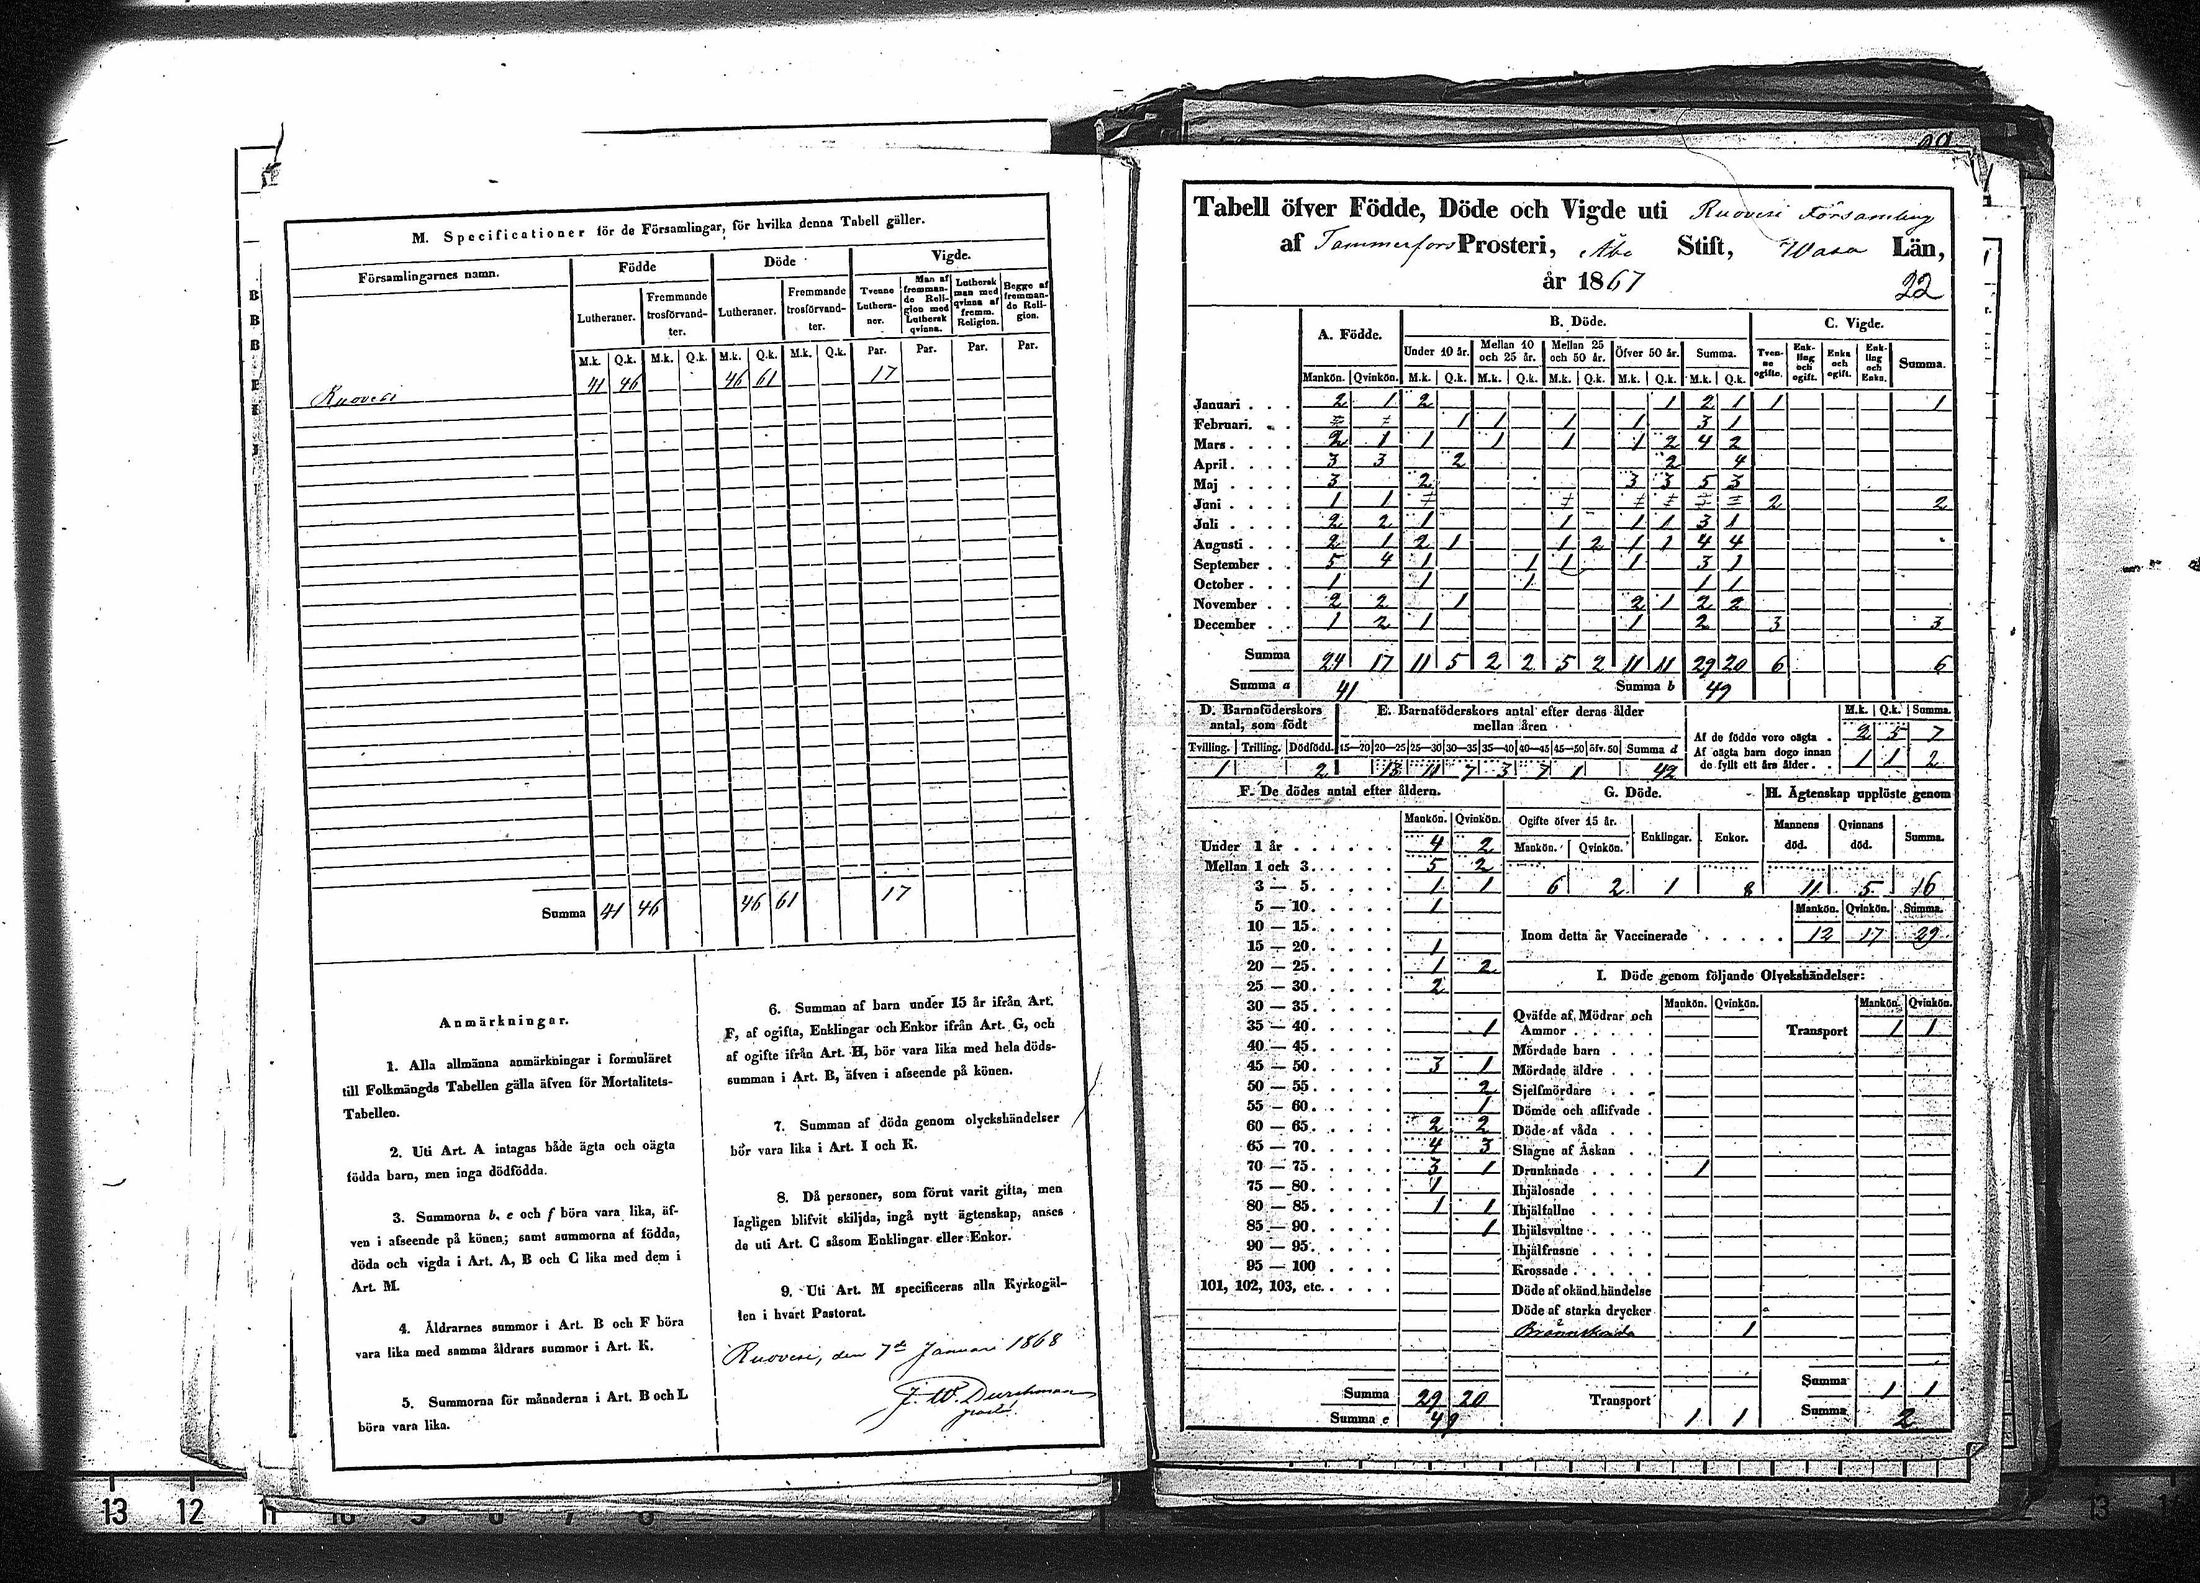 M. Specificationer för de Församlingar, för hvilka denna Tabell gäller.
Församlingarnes namn. Födde Döde Vigde.
Lutheraner. Fremmande trosförvand-ter. Lutheraner. Fremmande trosförvand-ter. Tvenne Luthera-ner. Man af fremman-de Reli-gion med Luthersk qvinna. Luthersk man med qvinna af fremm. Religion. Begge af fremman-de Reli-gion.
M.k. Q.k. M.k. Q.k. M.k. Q.k. M.k. Q.k. Par. Par. Par. Par.
Ruovesi 41 46 46 61 17
Summa 41 46 46 61 17
Anmärkningar.
1. Alla allmänna anmärkningar i formuläret
till Folkmängds Tabellen gälla äfven för Mortalitets-
Tabellen.
2. Uti Art. A intagas både ägta och oägta
födda barn, men inga dödfödda.
3. Summorna b, e och f böra vara lika, äf-
ven i afseende på könen; samt summorna af födda,
döda och vigda i Art. A, B och C lika med dem i
Art. M.
4. Åldrarnes summor i Art. B och F böra
vara lika med samma åldrars summor i Art. K.
5. Summorna för månaderna i Art. B och L
böra vara lika.
6. Summan af barn under 15 år ifrån Art.
F, af ogifta, Enklingar och Enkor ifrån Art. G, och
af ogifte ifrån Art. H, bör vara lika med hela döds-
summan i Art. B, äfven i afseende på könen.
7. Summan af döda genom olyckshändelser
bör vara lika i Art. I och K.
8. Då personer, som förut varit gifta, men
lagligen blifvit skiljda, ingå nytt ägtenskap, anses
de uti Art. C såsom Enklingar eller Enkor.
9. Uti Art. M specificeras alla Kyrkogäl-
len i hvart Pastorat.
Ruovesi, den 7de Januari 1868
J. W. Durchman
prost
Tabell öfver Födde, Döde och Vigde uti Ruovesi Församling
af Tammerfors Prosteri, Åbo Stift, Wasa Län,
år 1867 22
A. Födde. B. Döde. C. Vigde.
Under 10 år. Mellan 10 och 25 år. Mellan 25 och 50 år. Öfver 50 år. Summa. Tven-ne ogifte. Enk-ling och ogift. Enka och ogift. Enk-ling och Enka. Summa.
Mankön. Qvinkön. M.k. Q.k. M.k. Q.k. M.k. Q.k. M.k. Q.k. M.k. Q.k.
Januari 2 1 2 1 2 1 1 1
Februari 1 1 1 1 3 1
Mars 2 1 1 1 1 1 2 4 2
April 3 3 2 2 4
Maj 3 2 3 3 5 3
Juni 1 1 2 2
Juli 2 2 1 1 1 1 3 1
Augusti 2 1 2 1 1 2 1 1 4 4
September 5 4 1 1 1 1 3 1
October 1 1 1 1 1
November 2 2 1 2 1 2 2
December 1 2 1 1 2 3 3
Summa 24 17 11 5 2 2 5 2 11 11 29 20 6 6
Summa a 41 Summa b 49
D. Barnaföderskors antal, som födt
Tvilling. Trilling. Dödfödd.
1 2
E. Barnaföderskors antal efter deras ålder mellan åren
15—20 20—25 25—30 30—35 35—40 40—45 45—50 öfv. 50 Summa d
13 11 7 3 7 1 42
M.k. Q.k. Summa.
Af de födde voro oägta 2 5 7
Af oägta barn dogo innan de fyllt ett års ålder 1 1 2
F. De dödes antal efter åldern.
Mankön. Qvinkön.
Under 1 år 4 2
Mellan 1 och 3 5 2
3 — 5 1 1
5 — 10 1
10 — 15
15 — 20 1
20 — 25 1 2
25 — 30 2
30 — 35
35 — 40 1
40 — 45
45 — 50 3 1
50 — 55 2
55 — 60 1
60 — 65 2 2
65 — 70 4 3
70 — 75 3 1
75 — 80 1
80 — 85 1 1
85 — 90 1
90 — 95
95 — 100
101, 102, 103, etc.
Summa 29 20
Summa e 49
G. Döde.
Ogifte öfver 15 år. Enklingar. Enkor.
Mankön. Qvinkön.
6 2 1 8
H. Ägtenskap upplöste genom
Mannens död. Qvinnans död. Summa.
11 5 16
Mankön. Qvinkön. Summa.
Inom detta år Vaccinerade 12 17 29
I. Döde genom följande Olyckshändelser:
Mankön. Qvinkön. Mankön. Qvinkön.
Qväfde af Mödrar och Ammor Transport 1 1
Mördade barn
Mördade äldre
Sjelfmördare
Dömde och aflifvade
Döde af våda
Slagne af Åskan
Drunknade 1
Ihjälosade
Ihjälfallne
Ihjälsvultne
Ihjälfrusne
Krossade
Döde af okänd händelse
Döde af starka drycker
Brännskada 1
Summa 1 1
Transport 1 1 Summa 2